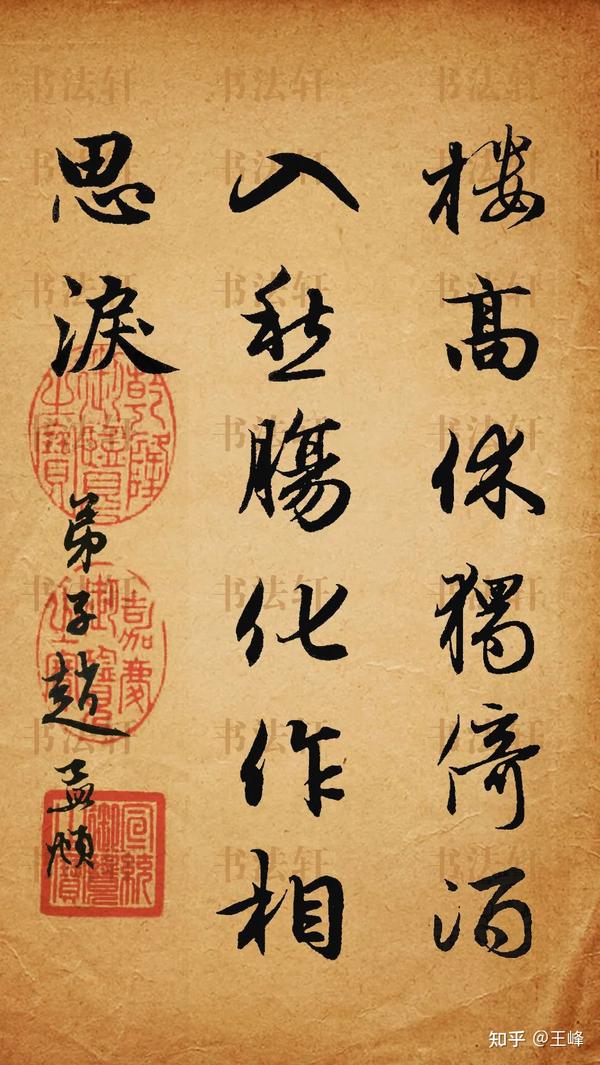 樓髙休獨倚酒
入愁腸化作相
思淚
弟子趙孟頫
乾隆御覽之寶
嘉慶御覽之寶
宣統御覽之寶
书法轩
知乎 @王峰